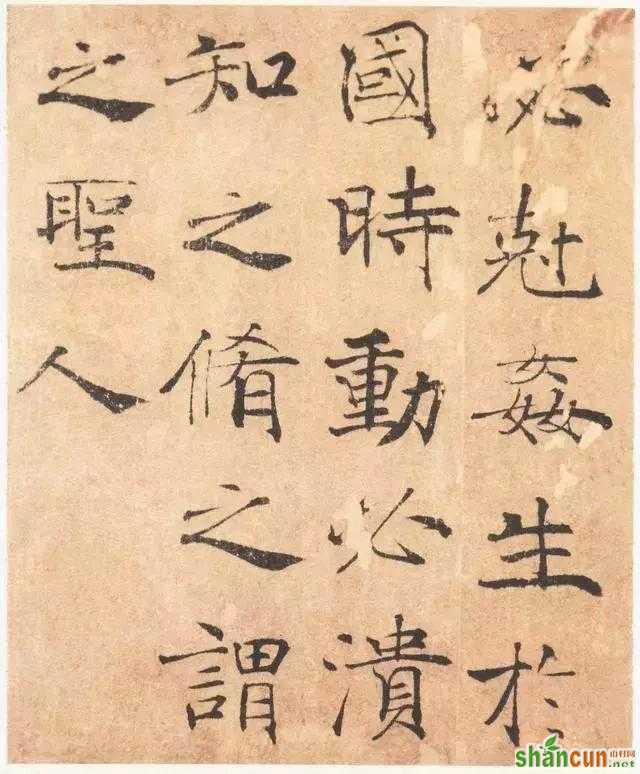 必尅姦生於
國時動必潰
知之脩之謂
之聖人
shancun 山村网
.net